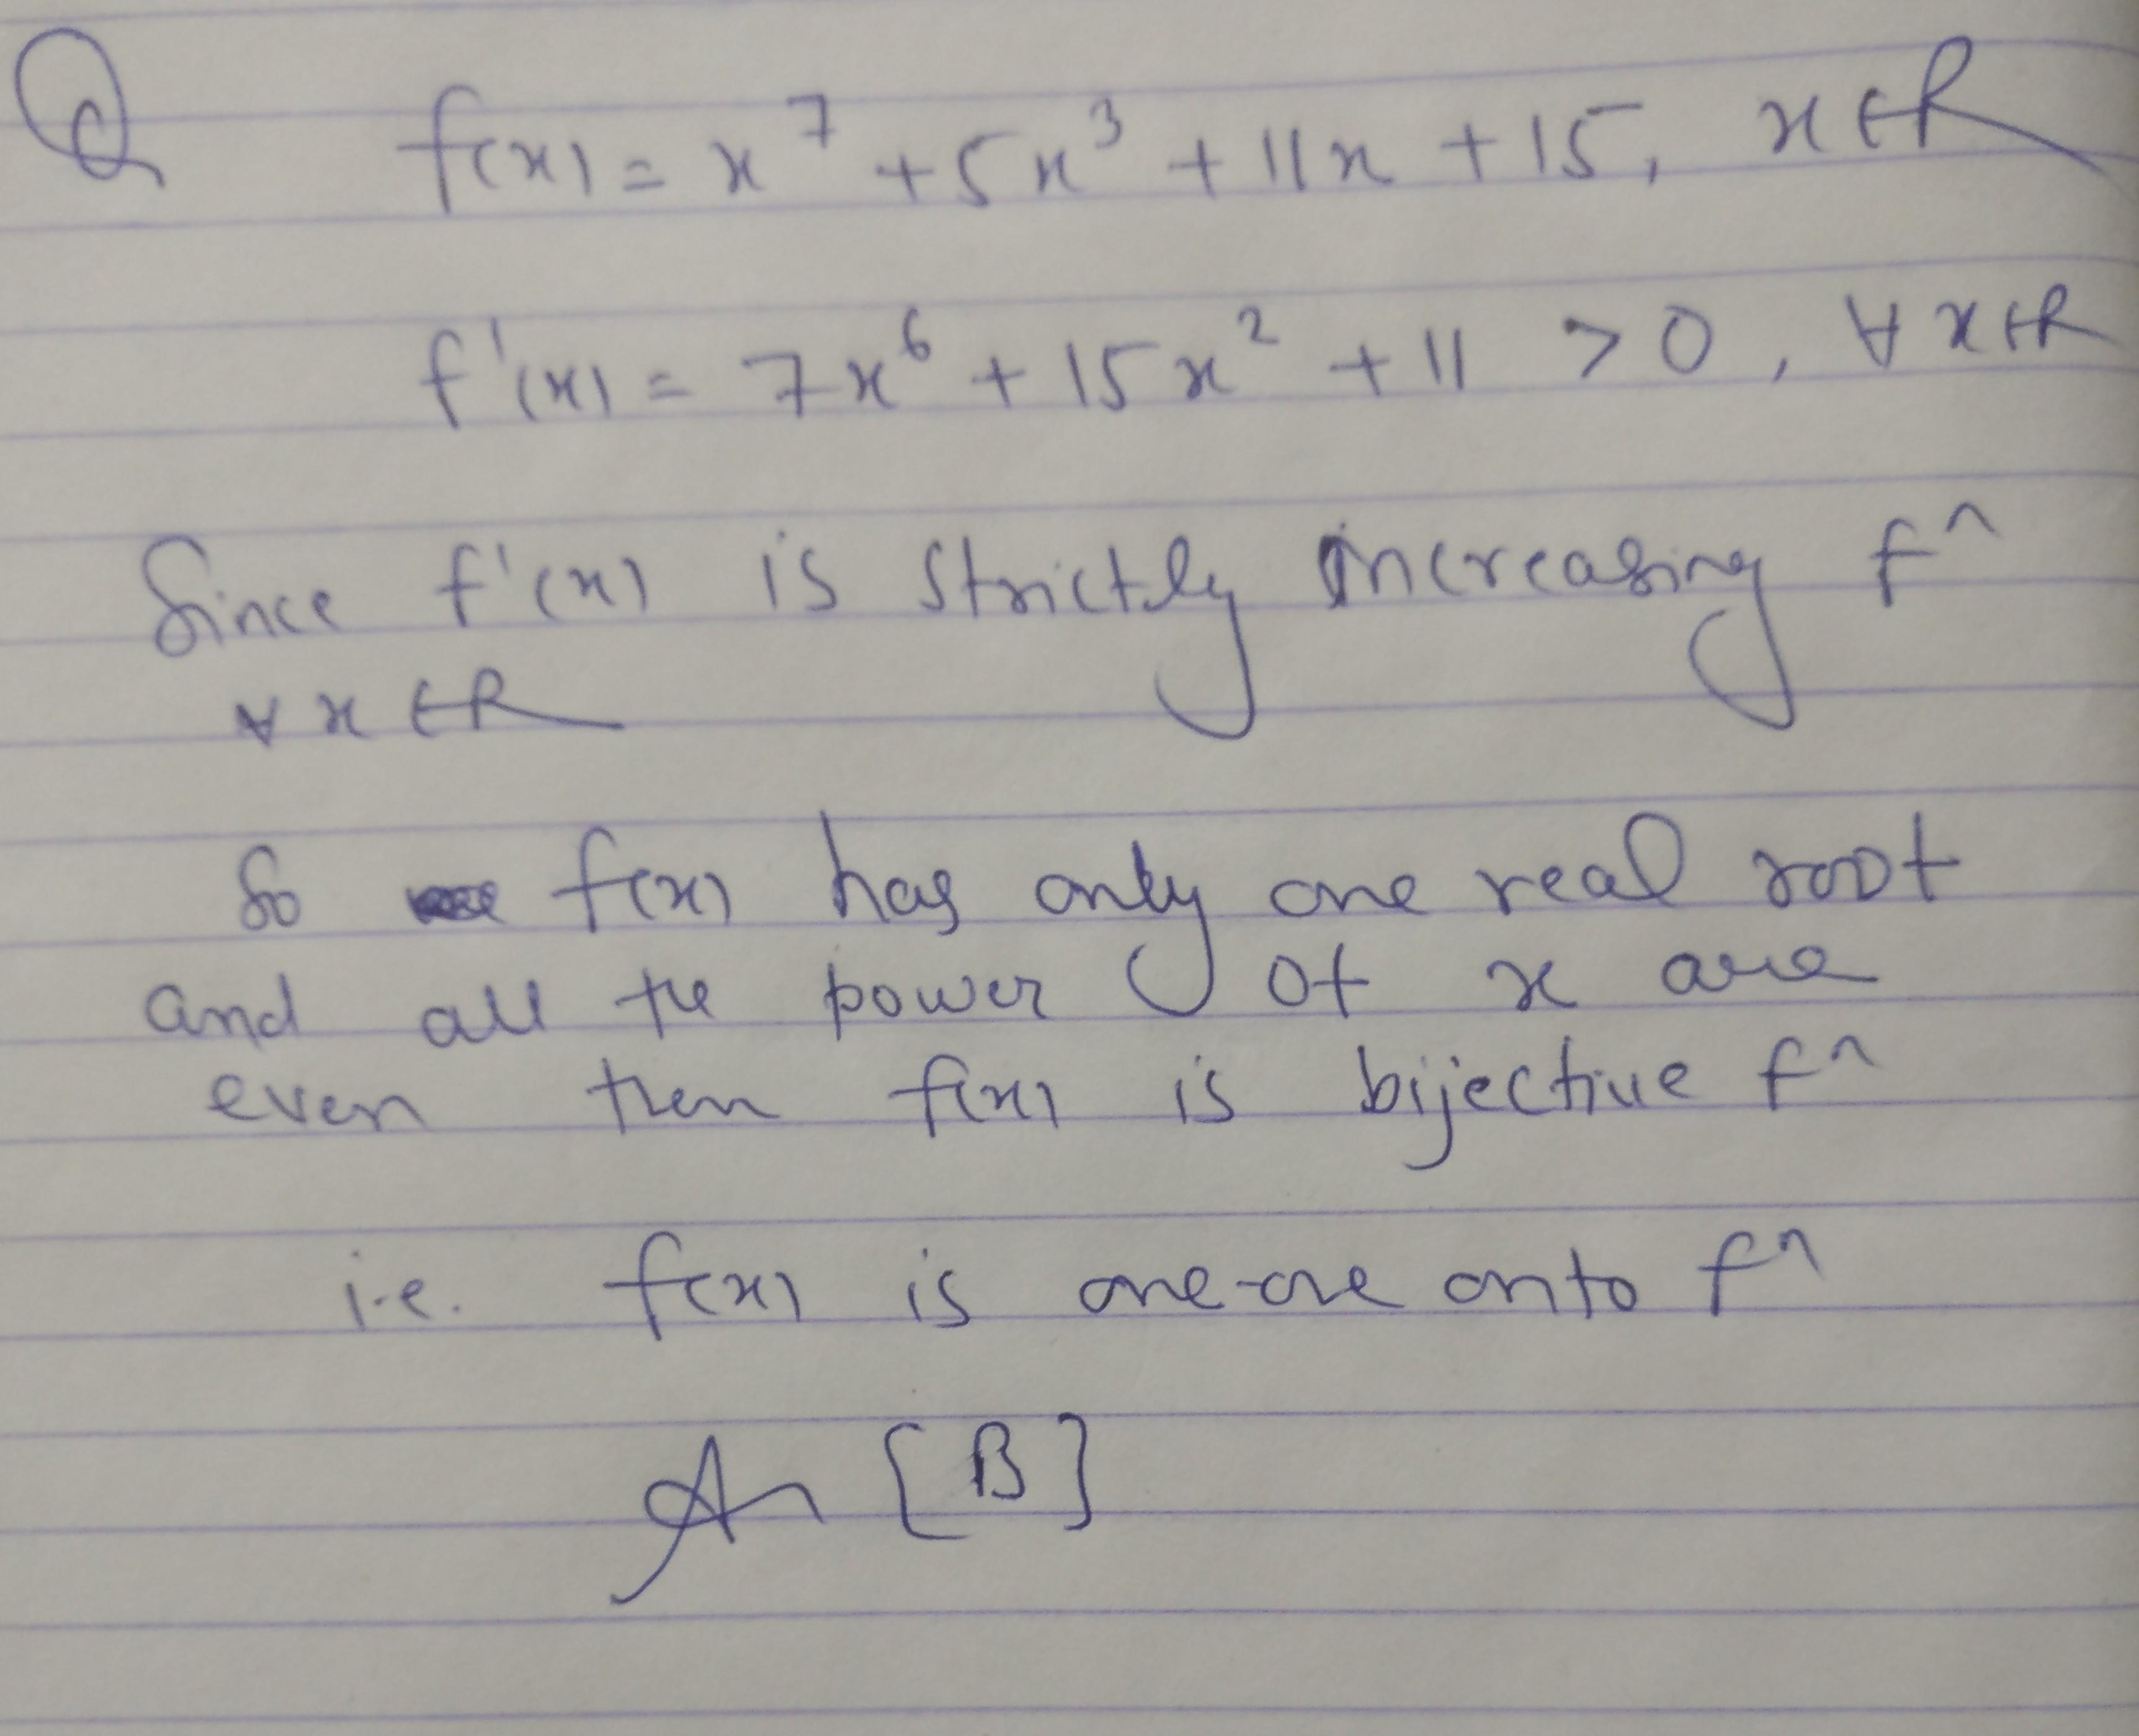 Q f(x) = x⁷ + 5x³ + 11x + 15, x ∈ R
f'(x) = 7x⁶ + 15x² + 11 > 0, ∀ x ∈ R
Since f'(x) is strictly increasing fⁿ
∀ x ∈ R
So f(x) has only one real root
and all the power of x are
even then f(x) is bijective fⁿ
i.e. f(x) is one-one onto fⁿ
An [B]